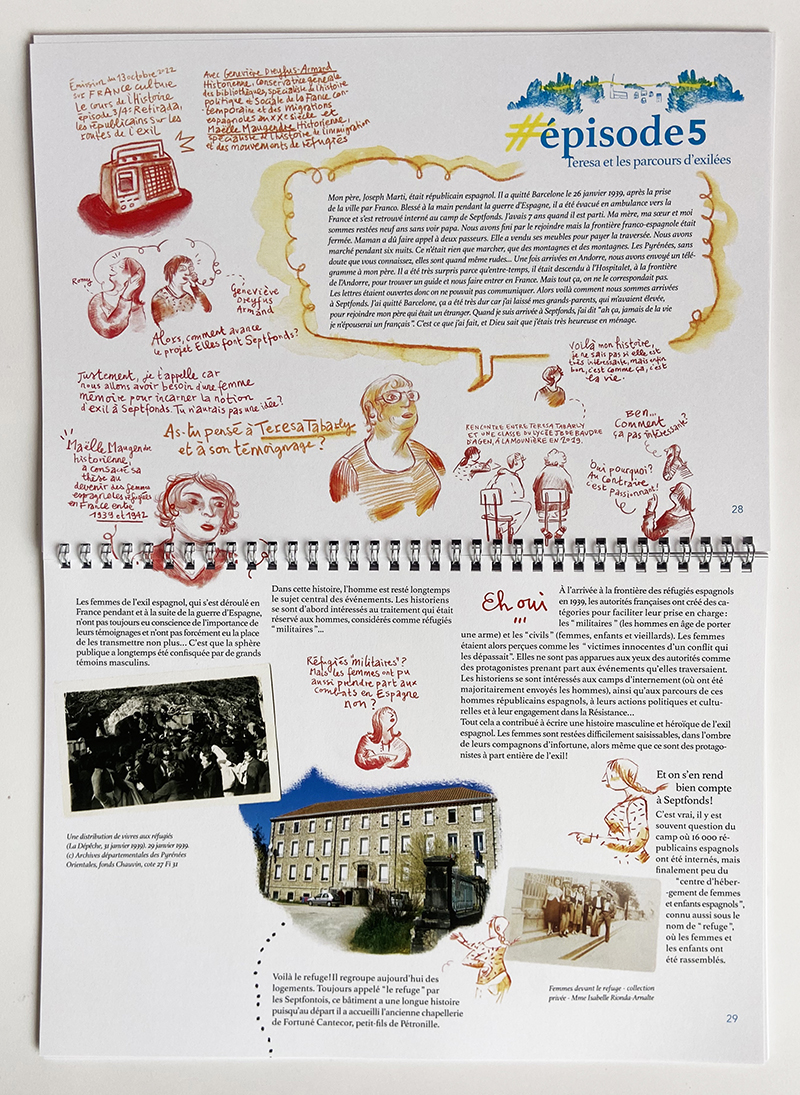 Émission du 13 octobre 2022
sur FRANCE culture
Le cours de l'Histoire
épisode 3/4: Retirada,
les républicains sur les
routes de l'exil
Avec Geneviève Dreyfus-Armand
Historienne, conservatrice générale
des bibliothèques, spécialiste de l'histoire
politique et sociale de la France con-
temporaine et des migrations
espagnoles au XXe siècle et
Maëlle Maugendre Historienne,
spécialiste de l'histoire de l'immigration
et des mouvements de réfugiés
#épisode5
Teresa et les parcours d'exilées
Mon père, Joseph Marti, était républicain espagnol. Il a quitté Barcelone le 26 janvier 1939, après la prise
de la ville par Franco. Blessé à la main pendant la guerre d'Espagne, il a été évacué en ambulance vers la
France et s'est retrouvé interné au camp de Septfonds. J'avais 7 ans quand il est parti. Ma mère, ma sœur et moi
sommes restées neuf ans sans voir papa. Nous avons fini par le rejoindre mais la frontière franco-espagnole était
fermée. Maman a dû faire appel à deux passeurs. Elle a vendu ses meubles pour payer la traversée. Nous avons
marché pendant six nuits. Ce n'était rien que marcher, que des montagnes et des montagnes. Les Pyrénées, sans
doute que vous connaissez, elles sont quand même rudes... Une fois arrivées en Andorre, nous avons envoyé un télé-
gramme à mon père. Il a été très surpris parce qu'entre-temps, il était descendu à l'Hospitalet, à la frontière
de l'Andorre, pour trouver un guide et nous faire entrer en France. Mais tout ça, on ne le correspondait pas.
Les lettres étaient ouvertes donc on ne pouvait pas communiquer. Alors voilà comment nous sommes arrivées
à Septfonds. J'ai quitté Barcelone, ça a été très dur car j'ai laissé mes grands-parents, qui m'avaient élevée,
pour rejoindre mon père qui était un étranger. Quand je suis arrivée à Septfonds, j'ai dit "ah ça, jamais de la vie
je n'épouserai un français". C'est ce que j'ai fait, et Dieu sait que j'étais très heureuse en ménage.
Romy
Geneviève
Dreyfus
Armand
Alors, comment avance
le projet Elles font Septfonds?
Voilà mon histoire,
je ne sais pas si elle est
très intéressante, mais enfin
bon, c'est comme ça, c'est
la vie.
Justement, je t'appelle car
nous allons avoir besoin d'une femme
mémoire pour incarner la notion
d'exil à Septfonds. Tu n'aurais pas une idée?
As-tu pensé à Teresa Tabarly
et à son témoignage?
Rencontre entre Teresa Tabarly
et une classe du lycée JB de Baudre
d'Agen, à Lamounière en 2019.
Ben...
Comment
ça pas intéressante?
Oui pourquoi?
Au contraire
c'est passionnant!
Maëlle Maugendre
historienne,
a consacré sa
thèse au
devenir des femmes
espagnoles réfugiées
en France entre
1939 et 1942
28
Les femmes de l'exil espagnol, qui s'est déroulé en
France pendant et à la suite de la guerre d'Espagne,
n'ont pas toujours eu conscience de l'importance de
leurs témoignages et n'ont pas forcément eu la place
de les transmettre non plus... C'est que la sphère
publique a longtemps été confisquée par de grands
témoins masculins.
Dans cette histoire, l'homme est resté longtemps
le sujet central des événements. Les historiens
se sont d'abord intéressés au traitement qui était
réservé aux hommes, considérés comme réfugiés
"militaires"...
Réfugiés "militaires"?
Mais les femmes ont pu
aussi prendre part aux
combats en Espagne
non?
Eh oui
...
À l'arrivée à la frontière des réfugiés espagnols
en 1939, les autorités françaises ont créé des ca-
tégories pour faciliter leur prise en charge :
les "militaires" (les hommes en âge de porter
une arme) et les "civils" (femmes, enfants et vieillards). Les femmes
étaient alors perçues comme les "victimes innocentes d'un conflit qui
les dépassait". Elles ne sont pas apparues aux yeux des autorités comme
des protagonistes prenant part aux événements qu'elles traversaient.
Les historiens se sont intéressés aux camps d'internement (où ont été
majoritairement envoyés les hommes), ainsi qu'aux parcours de ces
hommes républicains espagnols, à leurs actions politiques et cultu-
relles et à leur engagement dans la Résistance...
Tout cela a contribué à écrire une histoire masculine et héroïque de l'exil
espagnol. Les femmes sont restées difficilement saisissables, dans l'ombre
de leurs compagnons d'infortune, alors même que ce sont des protago-
nistes à part entière de l'exil!
Une distribution de vivres aux réfugiés
(La Dépêche, 31 janvier 1939). 29 janvier 1939.
(c) Archives départementales des Pyrénées
Orientales, fonds Chauvin, cote 27 Fi 31
Et on s'en rend
bien compte
à Septfonds!
C'est vrai, il y est
souvent question du
camp où 16 000 ré-
publicains espagnols
ont été internés, mais
finalement peu du
"centre d'héber-
-gement de femmes
et enfants espagnols",
connu aussi sous le
nom de "refuge",
où les femmes et
les enfants ont
été rassemblés.
Voilà le refuge! Il regroupe aujourd'hui des
logements. Toujours appelé "le refuge" par
les Septfontois, ce bâtiment a une longue histoire
puisqu'au départ il a accueilli l'ancienne chapellerie
de Fortuné Cantecor, petit-fils de Pétronille.
Femmes devant le refuge - collection
privée - Mme Isabelle Rionda-Arnalte
29